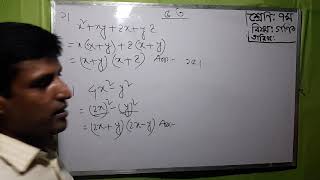 ২।
x² + xy + 2x + y2
= x(x+y) + 2(x+y)
= (x+y) (x+2) Ans-
4x² - y²
= (2x)² - (y)²
= (2x+y) (2x-y) Ans-
শ্রেণি: ৭ম
বিষয়: গণিত
তারিখ: